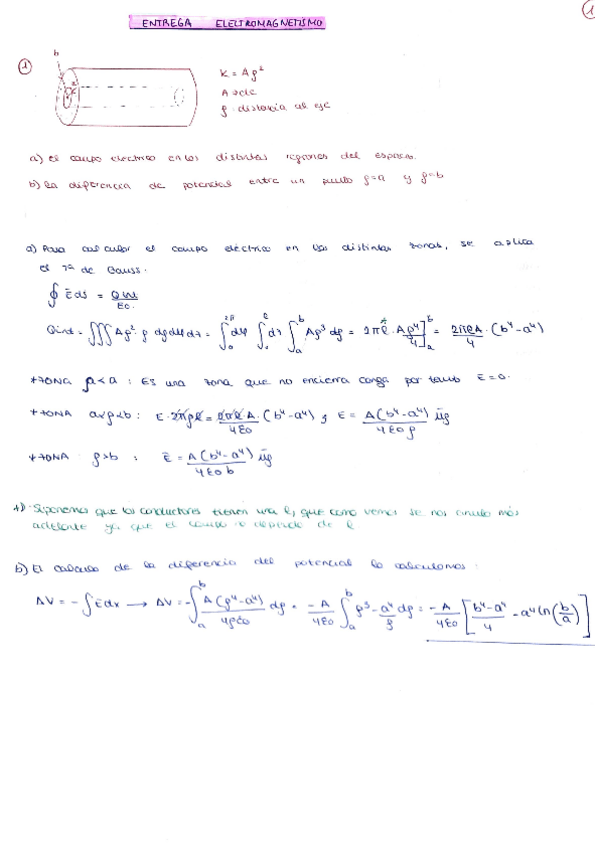 1
ENTREGA ELECTROMAGNETISMO
b
1
K = Aρ²
A → cte
ρ · distancia al eje
a) el campo eléctrico en las distintas regiones del espacio.
b) la diferencia de potencial entre un punto ρ=a y ρ=b
a) Para calcular el campo eléctrico en las distintas zonas, se aplica
el Tª de Gauss.
∮ Ēds = Qint/εo
Qint = ∭ Aρ² · ρ dρdφdz = ∫₀^2π dφ ∫₀^ℓ dz ∫ₐᵇ Aρ³ dρ = 2πℓ · Aρ⁴/4]ₐᵇ = 2πℓA/4 · (b⁴-a⁴)
* ZONA ρ<a : Es una zona que no encierra carga por tanto E=0.
* ZONA a<ρ<b : E·2πρℓ = 2πℓA/4εo · (b⁴-a⁴) ; E = A(b⁴-a⁴)/4εoρ ūρ
* ZONA ρ>b : Ē = A(b⁴-a⁴)/4εob ūρ
*): Suponemos que los conductores tienen una ℓ, que como vemos se nos anula más
adelante ya que el campo no depende de ℓ
b) El calculo de la diferencia del potencial lo calculamos:
ΔV = -∫Ēdr → ΔV = -∫ₐᵇ A(ρ⁴-a⁴)/4ρεo dρ = -A/4εo ∫ₐᵇ ρ³ - a⁴/ρ dρ = -A/4εo [b⁴-a⁴/4 - a⁴ln(b/a)]